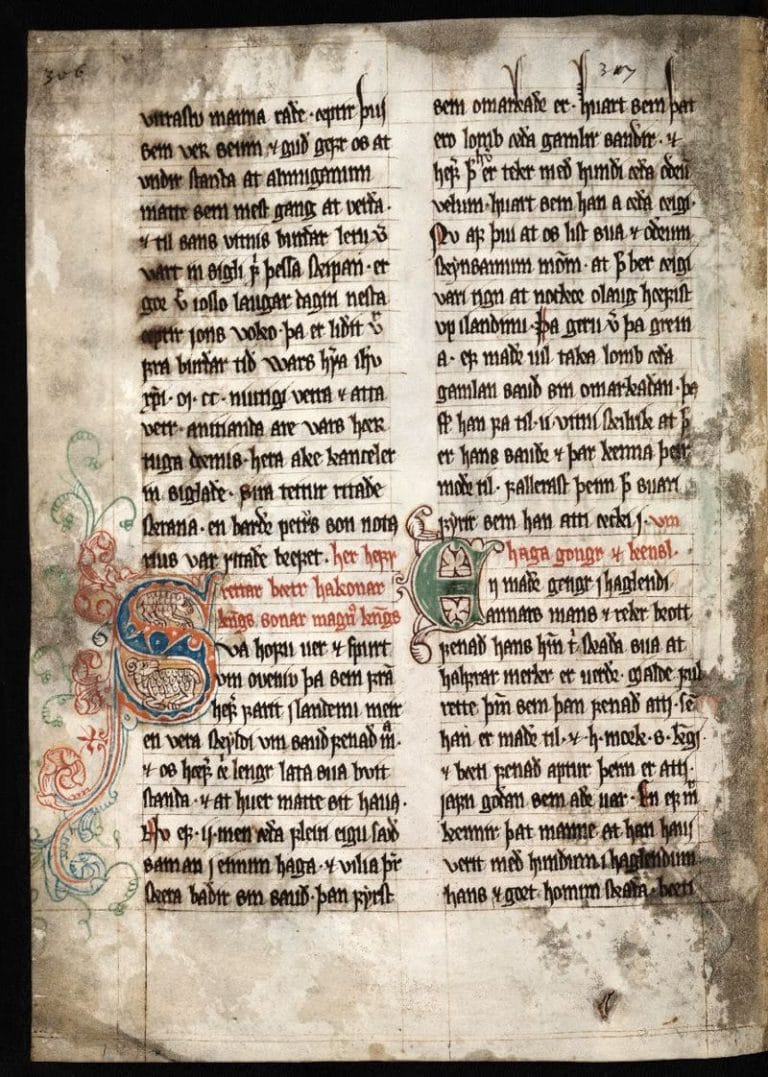 306
vitrastu manna rade · eptir þui
sem ver seum ⁊ gud gefr os at
vndir standa at almuganum
matte sem mest gang at verda ·
⁊ til sans vitnis burdar letu v̄
vart in sigli f̄ þessa skipan · er
gor v̄ i oslo laugar dagin nesta
eptir jons voko · þa er lidit v̄
fra burdar tid wars h̄ra ih̄u
xp̄i · m · cc · niutigi vetra ⁊ atta
vetr · annanda are vars
tuga doms · herra ake kanceler
in siglade · tettir ritade
skrana · en barde petrs son nota
rius var ritade brefet · her hefr
rettar bøtr hakonar
kn̄gs · sonar magn̄ kn̄gs
Sva hofu ver ⁊ spurt
vm oveniu þa sem fra
hefr farit slendemi meir
en vera skyldi vm saud fenad m̄ ·
⁊ os hefr lengr lata sua buit
standa · ⁊ at huer matte sit hava ·
Nv ef · ij · men eda flein eigu saud
saman j einum haga · ⁊ vilia þr̄
skera badir sin saud · þan fyrst
307
sem omarkade er · huart sem þat
ero lomb eda gamlir saudir · ⁊
hefr þ̄ hv̄ er tekr med hundi eda odrū
velum · huart sem han a eda eigi ·
Nv af þui at os list sua ⁊ odrum
skynsamum mōm · at þ̄ ber eigi
vari tign at nockor olaug hefist
vp i landinu · Þa geru v̄ þa grein
a · ef madr uil taka lomb eda
gamlan saud sin omarkadan · þa
han fa til · ij · vitni skilrik at þ̄
er hans saudr ⁊ þar kenna þeir
mode til · fallerast þeim þ̄ suari
fyrir sem han atti ecki j · vm
haga gongr ⁊ kensl ·
En madr gengr i haglendi
annars mans ⁊ rekr brott
fenad hans h̄m t̄ skada sua at
halfrar merkr er uerdr · gialde ful
rette þm̄ sem þan fenad atti ·
han̄ er madr til · ⁊ · h · mork · s · kn̄gi
⁊ beri fenad aptur þeim er atti ·
jafn godan sem adr uar · En ef m̄
kennir þat manne at han havi
verit med hundum i haglendum
hans ⁊ gort honum skada · beri